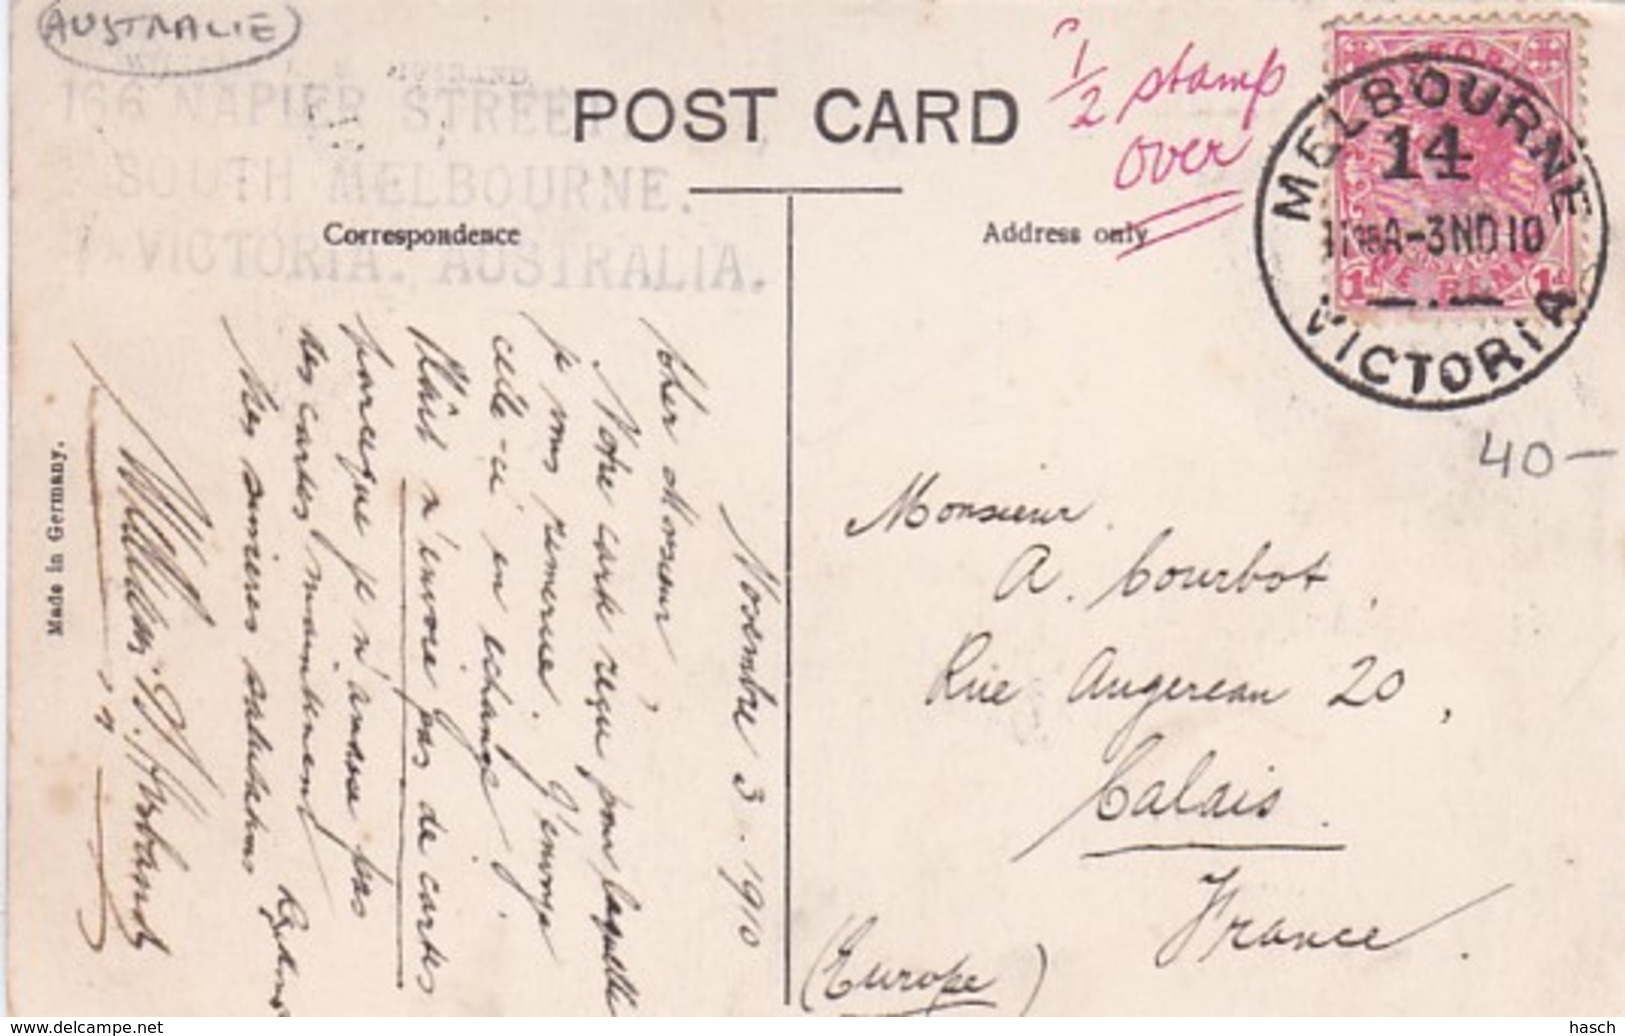 AUSTRALIE
166 NAPIER STREET.
SOUTH MELBOURNE.
VICTORIA. AUSTRALIA.
POST CARD
1/2 stamp
over
MELBOURNE
14
A-3NO10
VICTORIA
1d 1d
Correspondence
Address only
40-
Made in Germany.
Novembre 3. 1910
Cher Monsieur
Votre carte reçu pour laquelle
je vous remercie. J'envoye
celle-ci en échange.
Plaît n'envoye pas de cartes
parceque je n'amasse pas
les cartes maintenent
Mes sincères salutations
William Husband
Monsieur.
A. Courbot,
Rue Augereau 20,
Calais.
France.
(Europe)
www.delcampe.net
hasch